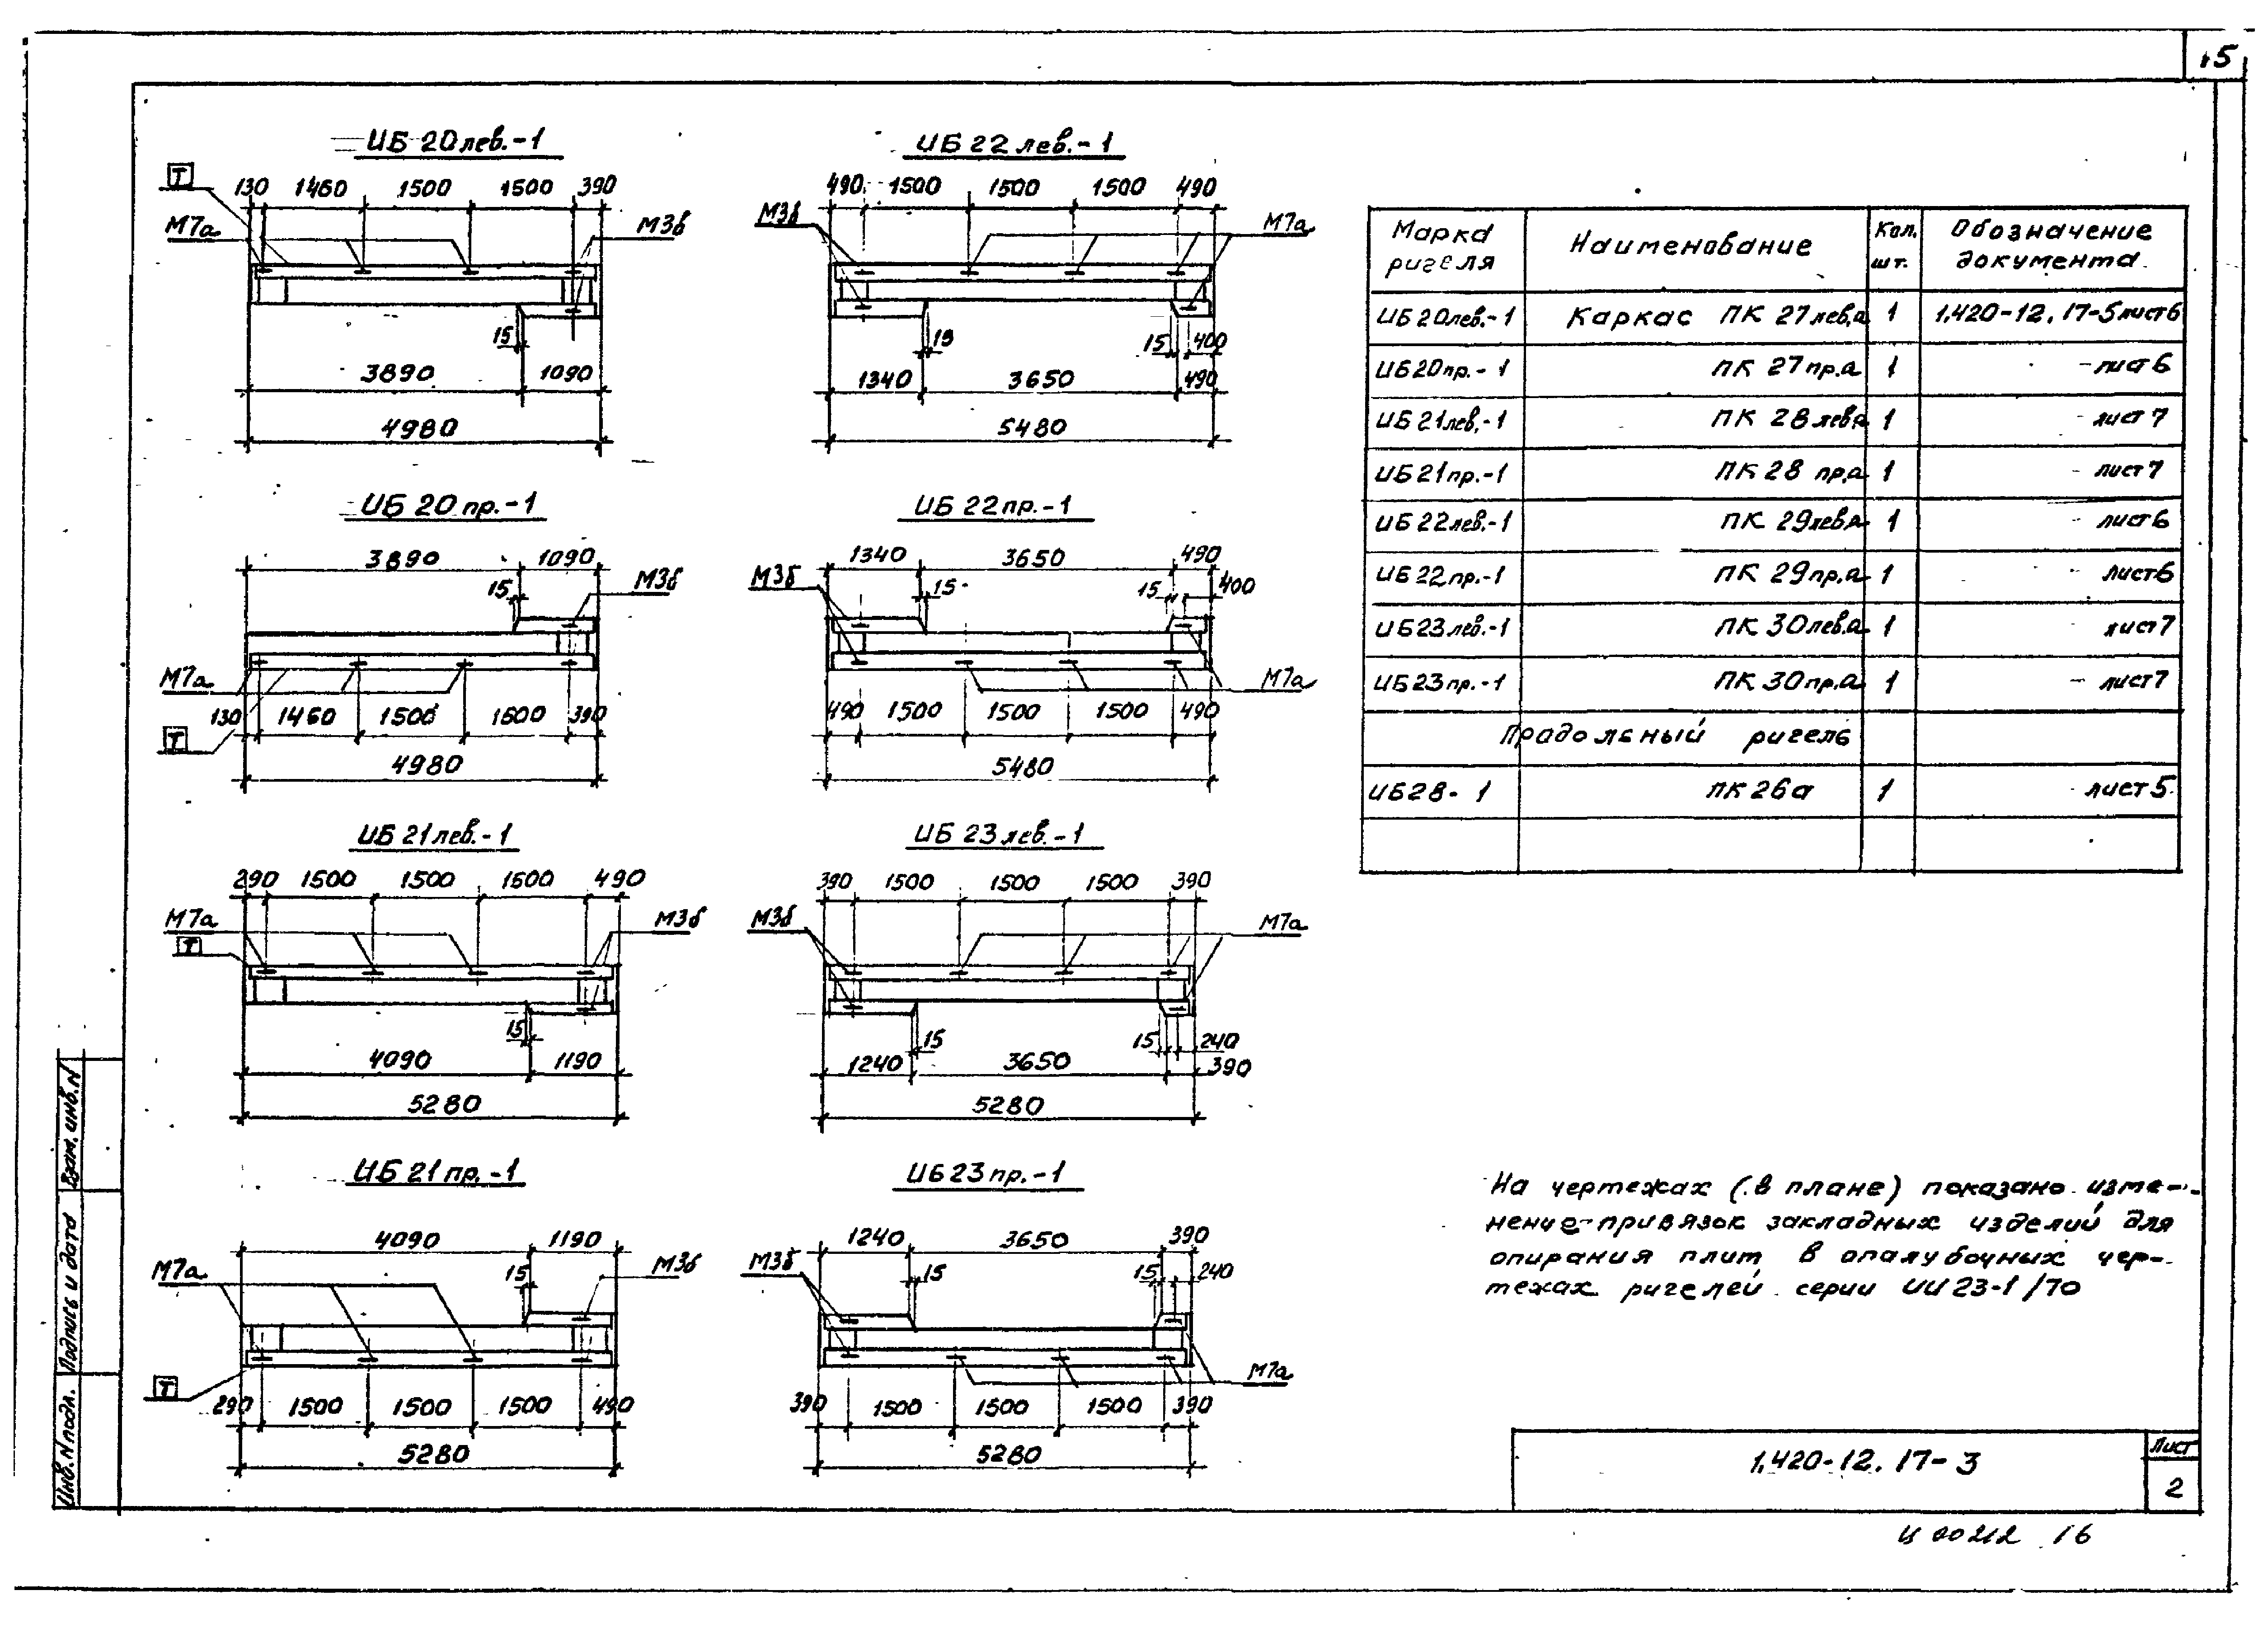 15
ИБ 20лев.-1
Т
130 1460 1500 1500 390
М7а М3б
15
3890 1090
4980
ИБ 22лев.-1
490 1500 1500 1500 490
М3б М7а
15 15 400
1340 3650 490
5480
ИБ 20 пр.-1
3890 1090
15 М3б
М7а
130 1460 1500 1500 390
Т
4980
ИБ 22пр.-1
1340 3650 490
М3б 15 15 400
М7а
490 1500 1500 1500 490
5480
ИБ 21лев.-1
290 1500 1500 1500 490
М7а М3б
Т
15
4090 1190
5280
ИБ 23лев.-1
390 1500 1500 1500 390
М3б М7а
15 15 240
1240 3650 390
5280
ИБ 21пр.-1
4090 1190
М7а 15 М3б
Т
290 1500 1500 1500 490
5280
ИБ23пр.-1
1240 3650 390
М3б 15 15 240
М7а
390 1500 1500 1500 390
5280
Марка ригеля Наименование Кол. шт. Обозначение документа
ИБ20лев.-1 Каркас ПК 27лев.а 1 1.420-12.17-5лист6
ИБ20пр.-1 ПК 27пр.а 1 -лист 6
ИБ21лев.-1 ПК 28лев.а 1 -лист 7
ИБ21пр.-1 ПК 28 пр.а 1 -лист7
ИБ22лев.-1 ПК 29лев.а 1 -лист6
ИБ22пр.-1 ПК 29пр.а 1 лист6
ИБ23лев.-1 ПК 30лев.а 1 лист7
ИБ23пр.-1 ПК 30пр.а 1 - лист7
Продольный ригель
ИБ28-1 ПК26а 1 лист5
На чертежах (в плане) показано изме-
нение привязок закладных изделий для
опирания плит в опалубочных чер-
тежах ригелей серии ИИ23-1/70
Взам. инв. N
Подпись и дата
Инв. N подл.
1.420-12. 17-3
Лист
2
16